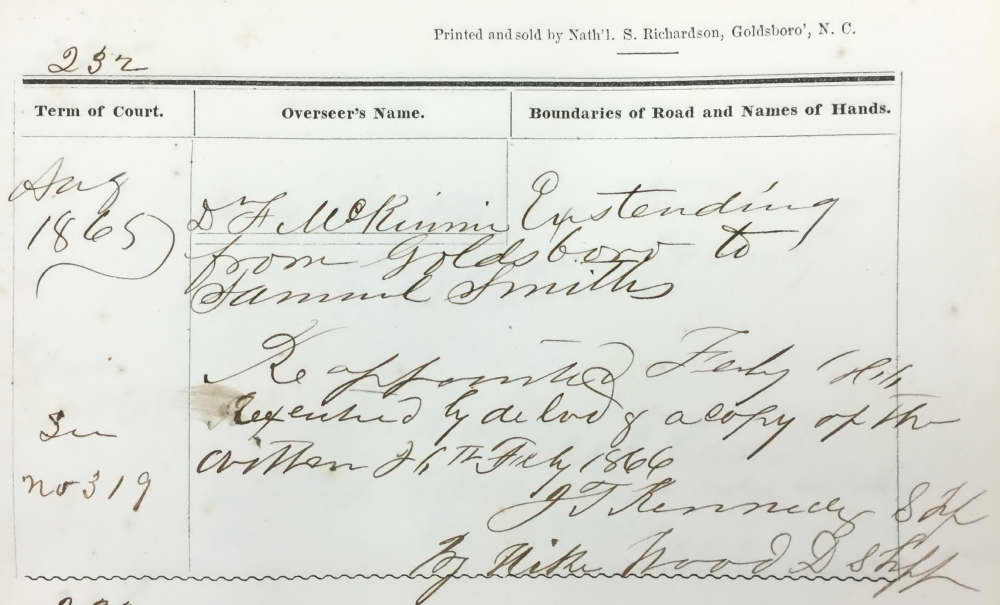 Printed and sold by Nath'l. S. Richardson, Goldsboro', N. C.
232
Term of Court. Overseer's Name. Boundaries of Road and Names of Hands.
Aug
1865
D F McKinnie Extending
from Goldsboro to
Samuel Smiths
Re appointed Feby
Executed by a copy of the
written Feby 1866
See
no 319
J T Kennedy Shff
By Mike Wood D Shff